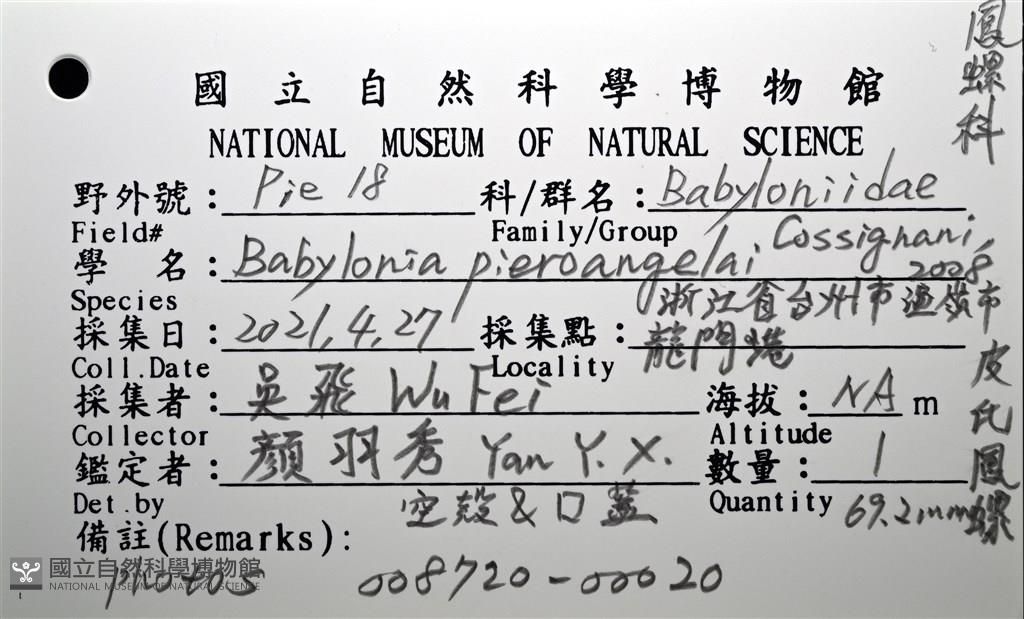 鳳螺科
國立自然科學博物館
NATIONAL MUSEUM OF NATURAL SCIENCE
野外號：Pie 18 科/群名：Babyloniidae
Field# Family/Group
學名：Babylonia pieroangelai Cossignani, 2008
Species
浙江省台州市溫嶺市
採集日：2021,4,27 採集點：龍門港
Coll.Date Locality
採集者：吳飛 Wu Fei 海拔：NA m
Collector Altitude
鑑定者：顏羽秀 Yan Y. X. 數量：1
Det.by 空殼&口蓋 Quantity 69.2mm
皮氏鳳螺
備註(Remarks):
photos 008720-00020
國立自然科學博物館
NATIONAL MUSEUM OF NATURAL SCIENCE